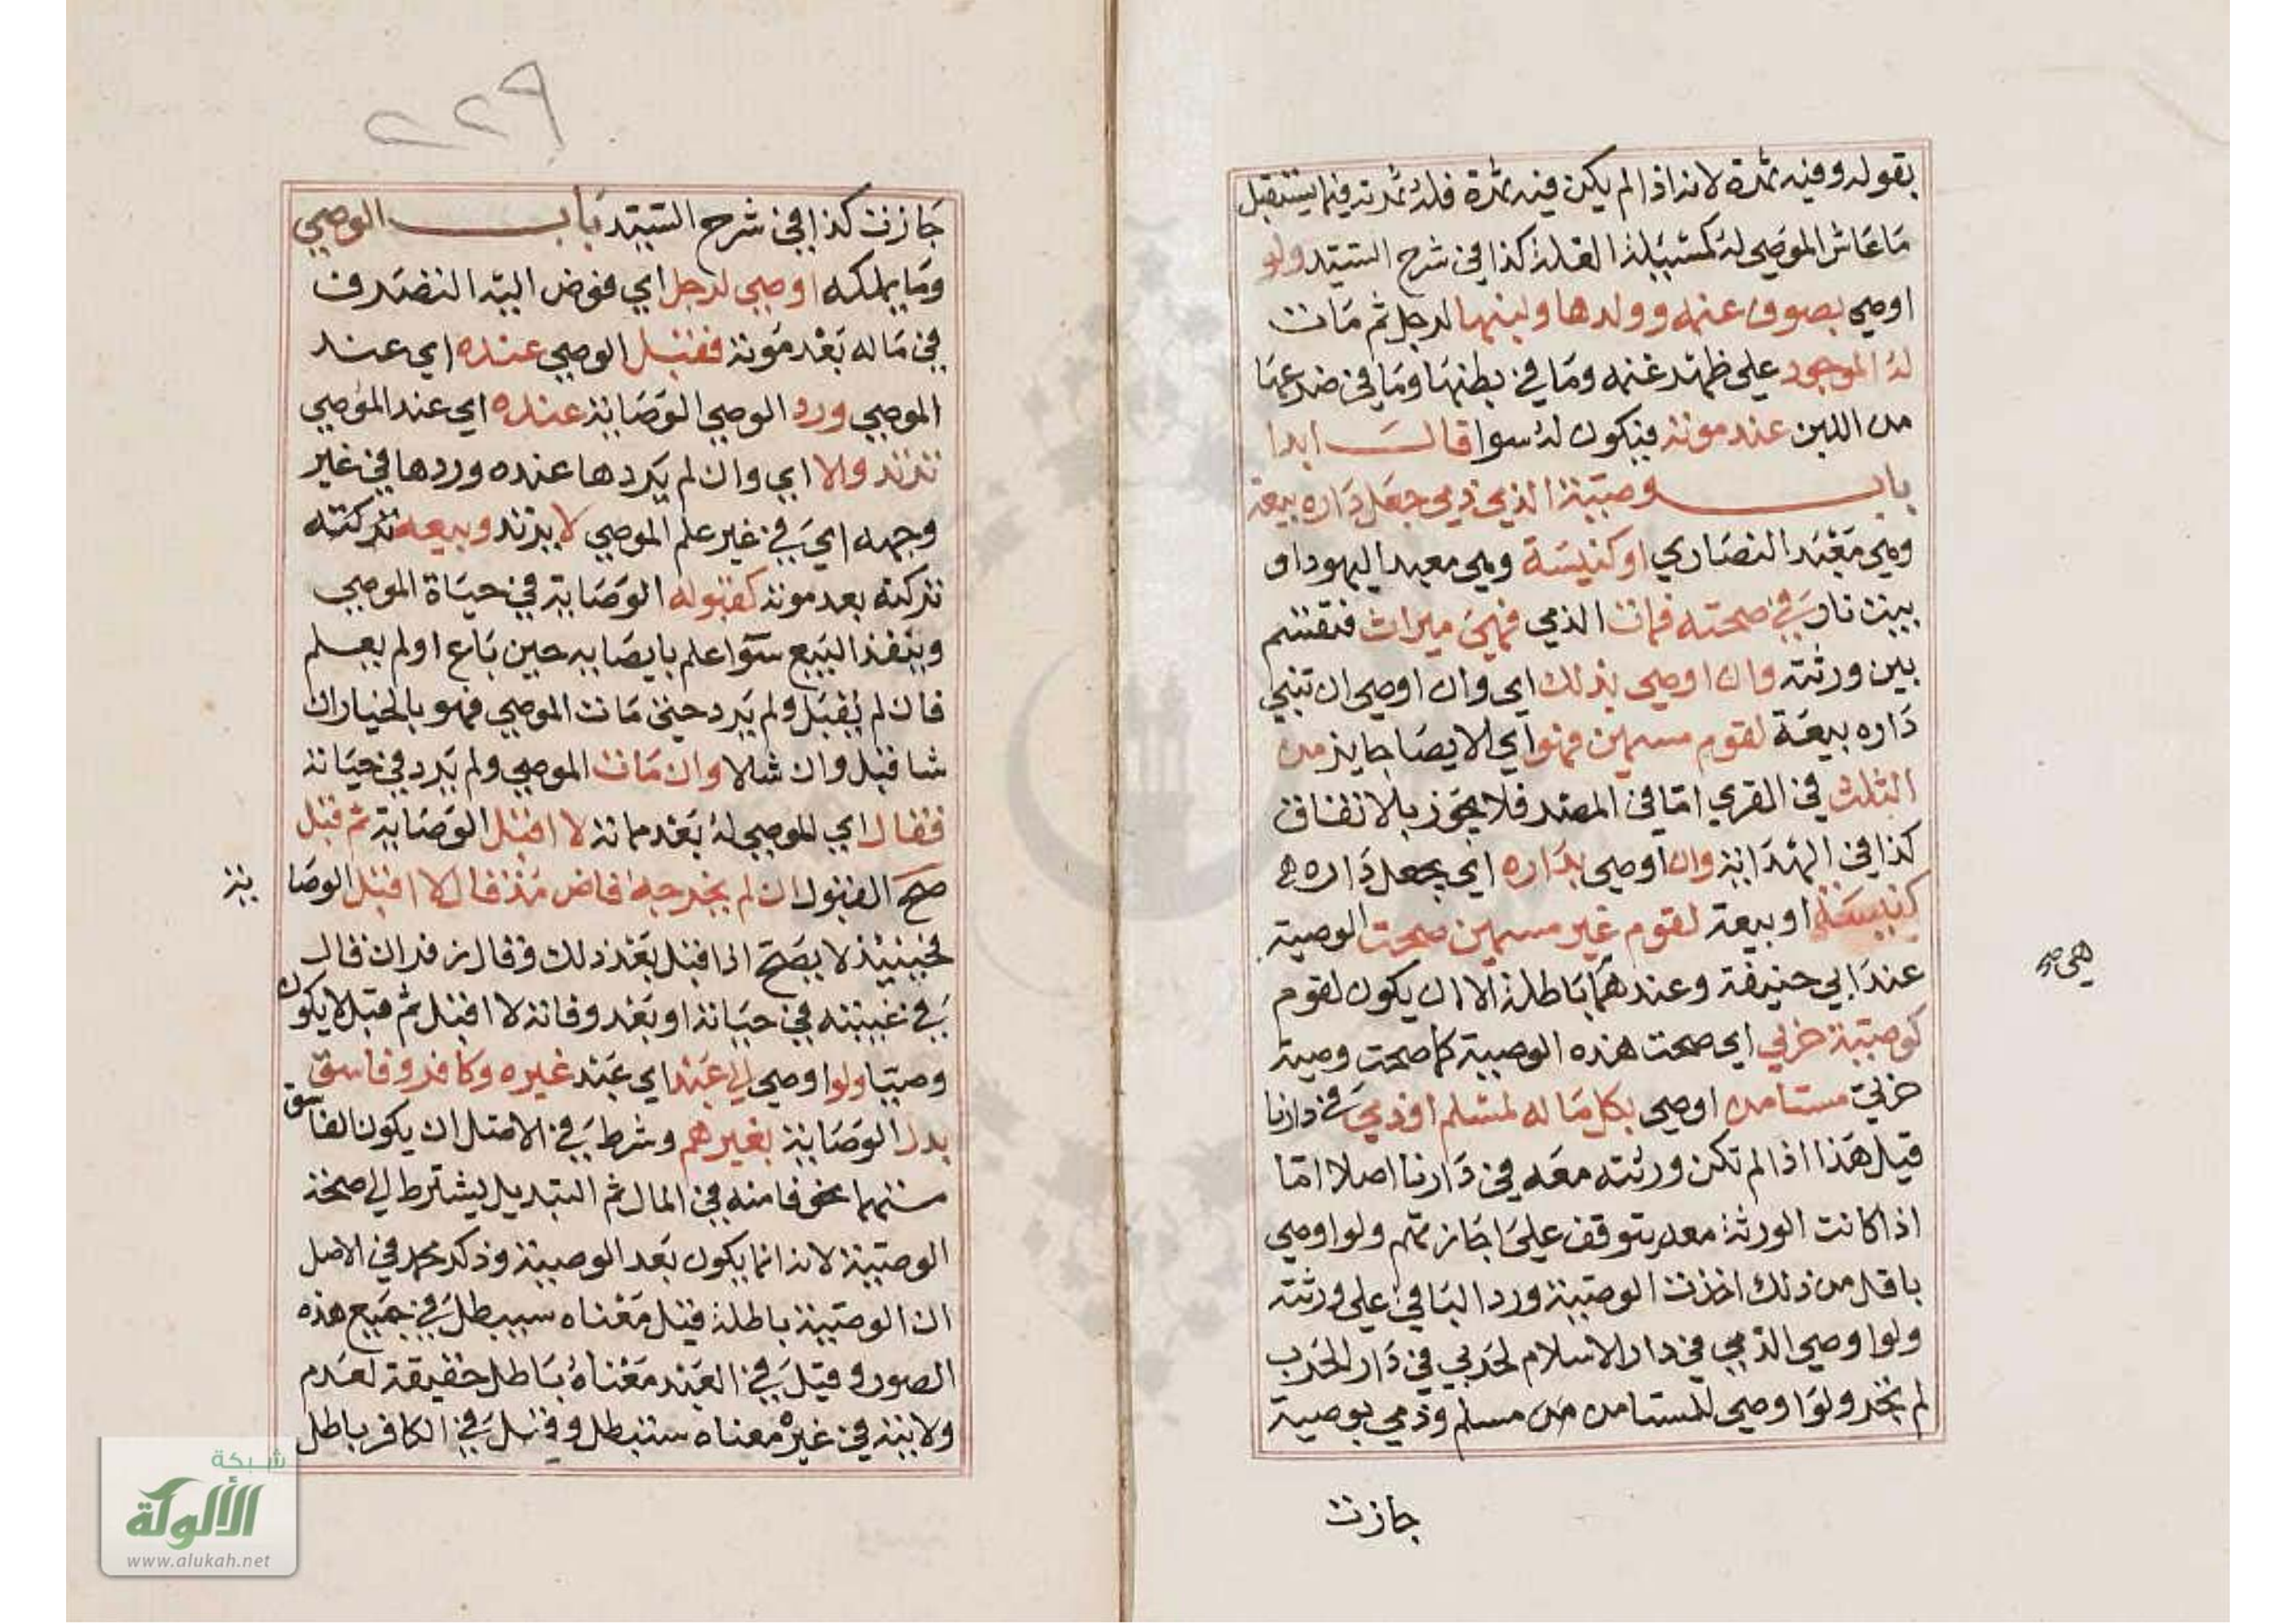 بقوله وفيه ثمرة لانه اذا لم يكن فيه ثمرة فله ثمرته فيما يستقبل
ما عاش الموصي له كمسئلة الغلة كذا في شرح السيد ولو
اوصي بصوف غنمه وولدها ولبنها لرجل ثم مات
له الموجود علي ظهر غنمه وما في بطنها وما في ضرعها
من اللبن عند موته فيكون له سوا قال ابدا
باب وصية الذمي ذمي جعل داره بيعة
وهي معبد النصاري او كنيسة وهي معبد اليهود او
بيت نار في صحته فمات الذمي فهي ميراث فتقسم
بين ورثته وان اوصي بذلك اي وان اوصي ان تبني
داره بيعة لقوم مسمين فهو اي الايصا جايز من
الثلث في القري اما في المصر فلا يجوز بالاتفاق
كذا في الهداية وان اوصي بداره اي بجعل داره
كنيسة او بيعة لقوم غير مسمين صحت الوصية
عند ابي حنيفة وعندهما باطلة الا ان يكون لقوم
كوصية حربي اي صحت هذه الوصية كما صحت وصية
حربي مستامن اوصي بكل ماله لمسلم او ذمي في دارنا
قيل هذا اذا لم تكن ورثته معه في دارنا اصلا اما
اذا كانت الورثة معه يتوقف علي اجازتهم ولو اوصي
باقل من ذلك اخذت الوصية ورد الباقي علي ورثته
ولو اوصي الذمي في دار الاسلام لحربي في دار الحرب
لم تجز ولو اوصي للمستامن من مسلم وذمي بوصية
جازت
٢٢٩
جازت كذا في شرح السيد باب الوصي
وما يملكه اوصي لرجل اي فوض اليه التصرف
في ماله بعد موته فقبل الوصي عنده اي عند
الموصي ورد الوصي الوصاية عنده اي عند الموصي
ترتد ولا اي وان لم يكردها عنده وردها في غير
وجهه اي في غير علم الموصي لا يرتد وبيعه تركته
تركته بعد موته كقبوله الوصاية في حياة الموصي
وينفذ البيع سوآ علم بايصايه حين باع او لم يعلم
فان لم يقبل ولم يرد حتي مات الموصي فهو بالخيار ان
شا قبل وان شا لا وان مات الموصي ولم يرد في حياته
فقال اي الموصي له بعد مماته لا اقبل الوصاية ثم قبل
صح القبول ان لم يخرجه قاض مذ قال لا اقبل الوصا ية
فحينيذ لا يصح اذا قبل بعد ذلك وقال زفر ان قال
في غيبته في حياته او بعد وفاته لا اقبل ثم قبل لا يكون
وصيا ولو اوصي الي عبد اي عبد غيره وكافر وفاسق
بدل الوصاية بغيرهم وشرط في الاصل ان يكون الفاسق
متهما مخوفا منه في المال ثم التبديل يشترط الي صحة
الوصية لانه انما يكون بعد الوصية وذكر محمد في الاصل
ان الوصية باطلة قيل معناه سيبطل في جميع هذه
الصور وقيل في العبد معناه باطل حقيقة لعدم
ولايته في غيره معناه ستبطل وقيل في الكافر باطل
شبكة
الألوكة
www.alukah.net